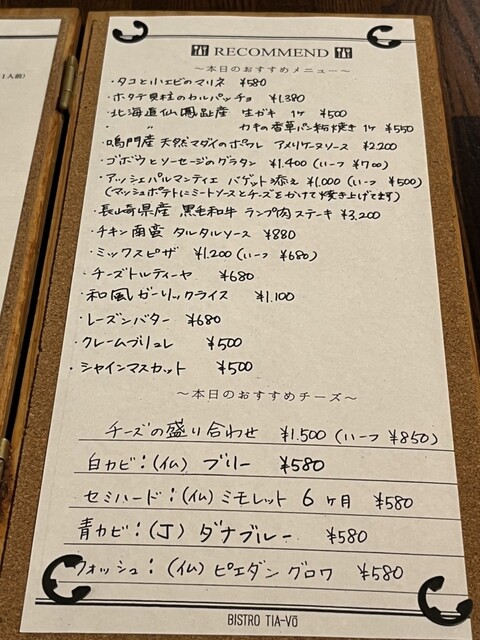 1人前)
RECOMMEND
～本日のおすすめメニュー～
・タコと小エビのマリネ ¥580
・ホタテ貝柱のカルパッチョ ¥1,380
・北海道仙鳳趾産 生ガキ 1ケ ¥500
・ 〃 カキの香草パン粉焼き 1ケ ¥550
・鳴門産 天然マダイのポワレ アメリケーヌソース ¥2,200
・ゴボウとソーセージのグラタン ¥1,400 (ハーフ ¥700)
・アッシェパルマンティエ バゲット添え ¥1,000 (ハーフ ¥500)
(マッシュポテトにミートソースとチーズをかけて焼き上げてます)
・長崎県産 黒毛和牛 ランプ肉ステーキ ¥3,200
・チキン南蛮 タルタルソース ¥880
・ミックスピザ ¥1,200 (ハーフ ¥680)
・チーズトルティーヤ ¥680
・和風ガーリックライス ¥1,100
・レーズンバター ¥680
・クレームブリュレ ¥500
・シャインマスカット ¥500
～本日のおすすめチーズ～
チーズの盛り合わせ ¥1,500 (ハーフ ¥850)
白カビ：(仏) ブリー ¥580
セミハード：(仏) ミモレット 6ヶ月 ¥580
青カビ：(J) ダナブルー ¥580
ウォッシュ：(仏) ピエダングロワ ¥580
BISTRO TIA-Vō